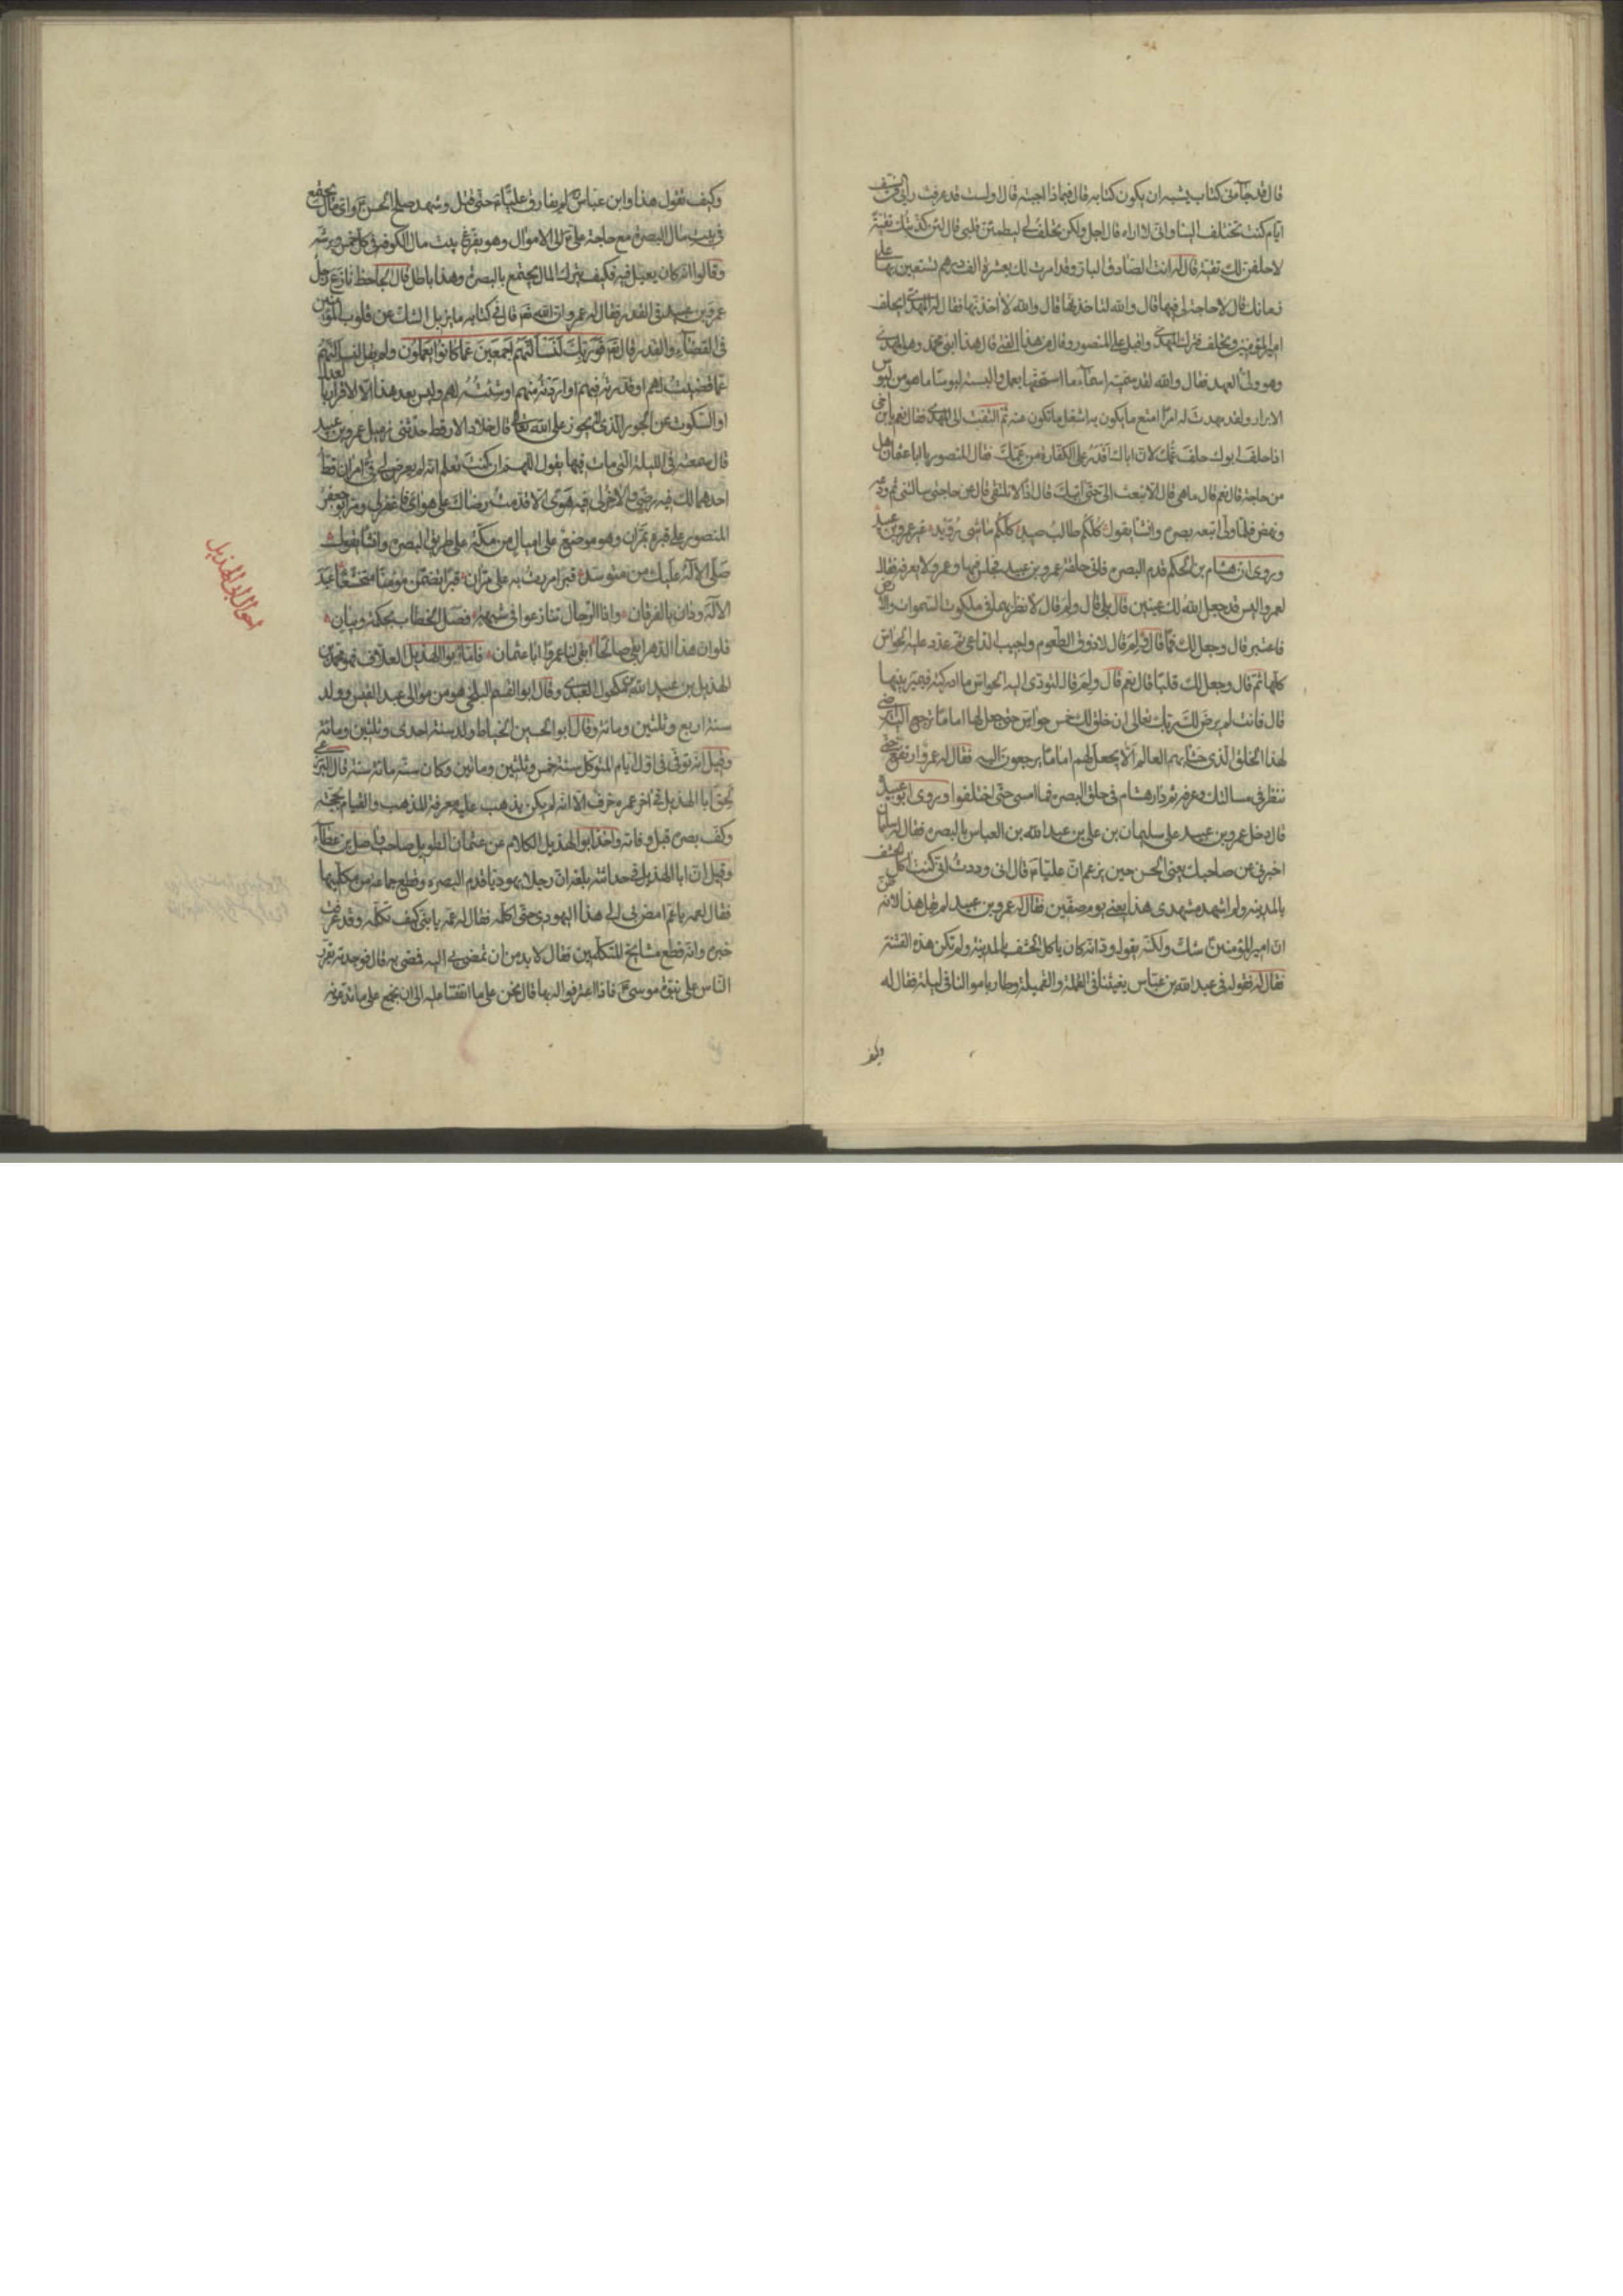 قال قد جآءنى كتاب يشبه ان يكون كتابه قال فبماذا اجبته قال اولست قد عرفت رأيى فى السيف
ايام كنت تختلف الينا وانى لا اراه قال اجل ولكن تحلف لى ليطمئن قلبى قال لئن كذبتك تقية
لاحلفن لك تقية قال له انت الصادق البار وقد امرت لك بعشرة الف درهم تستعين بها على
زمانك قال لا حاجة لى فيها قال والله لتاخذنها قال والله لا اخذتها فقال له المهدى ايحلف
امير المؤمنين وتحلف فترك المهدى واقبل على المنصور وقال من هذا الفتى قال هذا ابنى محمد وهو المهدى
وهو ولى العهد فقال والله لقد سميته اسمآء ما استحقها بعمل والبسته لبوسا ما هو من لبوس
الابرار ولقد مهدت له امرا امتع ما يكون به اشغل ما تكون عنه ثم التفت الى المهدى فقال نعم يا بن اخى
اذا حلف ابوك حلف عمك لان اباك اقدر على الكفارة من عمك فقال المنصور يا ابا عثمان هل
من حاجة قال نعم قال ما هى قال لا تبعث الى حتى اتيك قال اذا لا نلتقى قال عن حاجتى سالتنى ثم ودعه
ونهض فلما ولى اتبعه بصره وانشا يقول كلكم طالب صيد كلكم ماشى رويد غير عمرو بن عبيد
وروى ان هشام بن الحكم قدم البصرة فلقى حلقة عمرو بن عبيد فجلس فيها وعمرو لا يعرفه فقال
لعمرو اليس قد جعل الله لك عينين قال بلى قال ولم قال لانظر بهما فى ملكوت السموات والارض
فاعتبر قال وجعل لك فما قال نعم قال ولم قال لاذوق الطعوم واجيب الداعى ثم عدد عليه الحواس
كلها ثم قال وجعل لك قلبا قال نعم قال ولم قال لتؤدى اليه الحواس ما ادركته فيميز بينها
قال فانت لم يرض لك ربك تعالى ان خلق لك خمس حواس حتى جعل لها اماما ترجع اليه اترضى
لهذا الخلق الذى حشا بهم العالم الا يجعل لهم اماما يرجعون اليه فقال له عمرو ارتفع حتى
ننظر فى مسالتك وعرفه ثم دار هشام فى حلق البصرة فما امسى حتى اختلفوا وروى ابو عبيدة
قال دخل عمرو بن عبيد على سليمان بن على بن عبد الله بن العباس بالبصرة فقال له سليمان
اخبرنى عن صاحبك يعنى الحسن حين يزعم ان عليا ع قال انى وددت انى كنت اكل الحشف
بالمدينة ولم اشهد مشهدى هذا يعنى يوم صفين فقال له عمرو بن عبيد لم يقل هذا لانه ظن
ان امير المؤمنين ع شك ولكنه يقول ود انه كان ياكل الحشف بالمدينة ولم تكن هذه الفتنة
فقال له فقوله فى عبد الله بن عباس يفتينا فى القملة والقميلة وطار باموالنا فى ليلة فقال له
وكيف
وكيف تقول هذا وابن عباس لم يفارق عليا ع حتى قتل وشهد صلح الحسن ع واى مال يجتمع
فى بيت مال البصرة مع حاجة على ع الى الاموال وهو يفرغ بيت مال الكوفة فى كل خميس ويرشه
وقالوا انه كان يقيل فيه فكيف يترك المال يجتمع بالبصرة وهذا باطل قال الجاحظ نازع رجل
عمرو بن عبيد فى القدر فقال له عمرو ان الله تعالى قال فى كتابه ما يزيل الشك عن قلوب المؤمنين
فى القضآء والقدر قال تعالى فوربك لنسألنهم اجمعين عما كانوا يعملون ولم يقل لنسألنهم
عما قضيت لهم او قدرته فيهم او اردته منهم او شئته لهم وليس بعد هذا الا الاقرار بالعدل
او السكوت عن الجور الذى لا يجوز على الله تعالى قال خلاد الارقط حدثنى زميل عمرو بن عبيد
قال سمعته فى الليلة التى مات فيها يقول اللهم ان كنت تعلم انه لم يعرض لى امران قط
احدهما لك فيه رضى والاخر لى فيه هوى الا قدمت رضاك على هواى فاغفر لى ومر ابو جعفر
المنصور على قبره بمران وهو موضع على اميال من مكة على طريق البصرة وانشا يقول
صلى الاله عليك من متوسد قبرا مررت به على مران قبرا تضمن مؤمنا متخشعا عبد
الاله ودان بالفرقان واذا الرجال تنازعوا فى شبهة فصل الخطاب بحكمة وبيان
فلو ان هذا الدهر ابقى صالحا ابقى لنا عمروا ابا عثمان فاما ابو الهذيل العلاف فهو محمد بن
الهذيل بن عبيد الله بن مكحول العبدى وقال ابو القسم البلخى هو من موالى عبد القيس وولد
سنة اربع وثلثين ومائة وقال ابو الحسين الخياط ولد سنة احدى وثلثين ومائة
وقيل انه توفى فى اول ايام المتوكل سنة خمس وثلثين ومائتين وكان سنه مائة سنة قال البرذعى
لحق ابا الهذيل فى اخر عمره خرف الا انه لم يكن يذهب عليه معرفة المذهب والقيام بحجته
وكف بصره قبل وفاته واخذ ابو الهذيل الكلام عن عثمان الطويل صاحب واصل بن عطآء
وقيل ان ابا الهذيل فى حداثته بلغه ان رجلا يهوديا قدم البصرة وقطع جماعة من متكلميها
فقال لعمه يا عم امض بى الى هذا اليهودى حتى اكلمه فقال له عمه يا بنى كيف تكلمه وقد عرفت
خبره وانه قطع مشايخ المتكلمين فقال لا بد من ان تمضى بى اليه فمضى به قال فوجدته يقرر
الناس على نبوة موسى ع فاذا اعترفوا له بها قال نحن على ما اتفقنا عليه الى ان نجمع على ما تدعونه
احوال ابى الهذيل